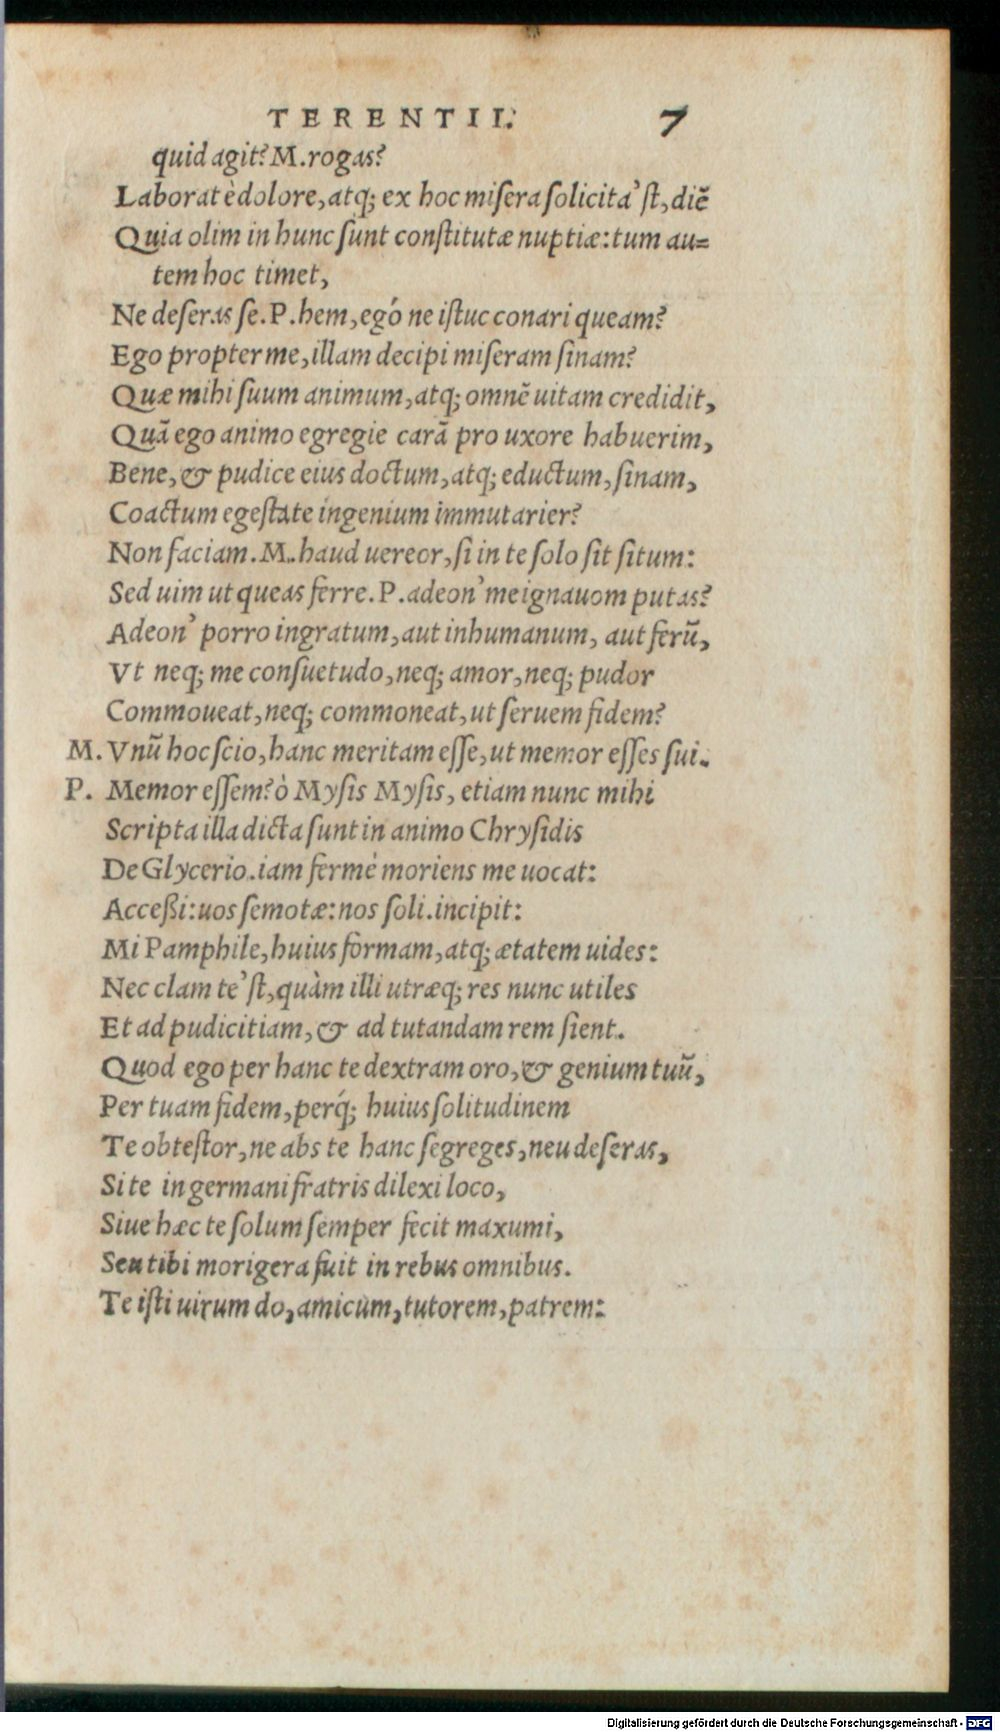 TERENTII. 7
quid agit? M. rogas?
Laborat è dolore, atq; ex hoc misera solicita'st, diē
Quia olim in hunc sunt constitutæ nuptiæ: tum au=
tem hoc timet,
Ne deseras se. P. hem, egó ne istuc conari queam?
Ego propter me, illam decipi miseram sinam?
Quæ mihi suum animum, atq; omnē uitam credidit,
Quā ego animo egregie carā pro uxore habuerim,
Bene, & pudice eius doctum, atq; eductum, sinam,
Coactum egestate ingenium immutarier?
Non faciam. M. haud uereor, si in te solo sit situm:
Sed uim ut queas ferre. P. adeon' me ignauom putas?
Adeon' porro ingratum, aut inhumanum, aut ferū,
Vt neq; me consuetudo, neq; amor, neq; pudor
Commoueat, neq; commoneat, ut seruem fidem?
M. Vnū hoc scio, hanc meritam esse, ut memor esses sui.
P. Memor essem? ò Mysis Mysis, etiam nunc mihi
Scripta illa dicta sunt in animo Chrysidis
De Glycerio. iam fermè moriens me uocat:
Acceßi: uos semotæ: nos soli. incipit:
Mi Pamphile, huius formam, atq; ætatem uides:
Nec clam te'st, quàm illi utræq; res nunc utiles
Et ad pudicitiam, & ad tutandam rem sient.
Quod ego per hanc te dextram oro, & genium tuū,
Per tuam fidem, perq́; huius solitudinem
Te obtestor, ne abs te hanc segreges, neu deseras,
Si te in germani fratris dilexi loco,
Siue hæc te solum semper fecit maxumi,
Seu tibi morigera fuit in rebus omnibus.
Te isti uirum do, amicum, tutorem, patrem:
Digitalisierung gefördert durch die Deutsche Forschungsgemeinschaft - DFG